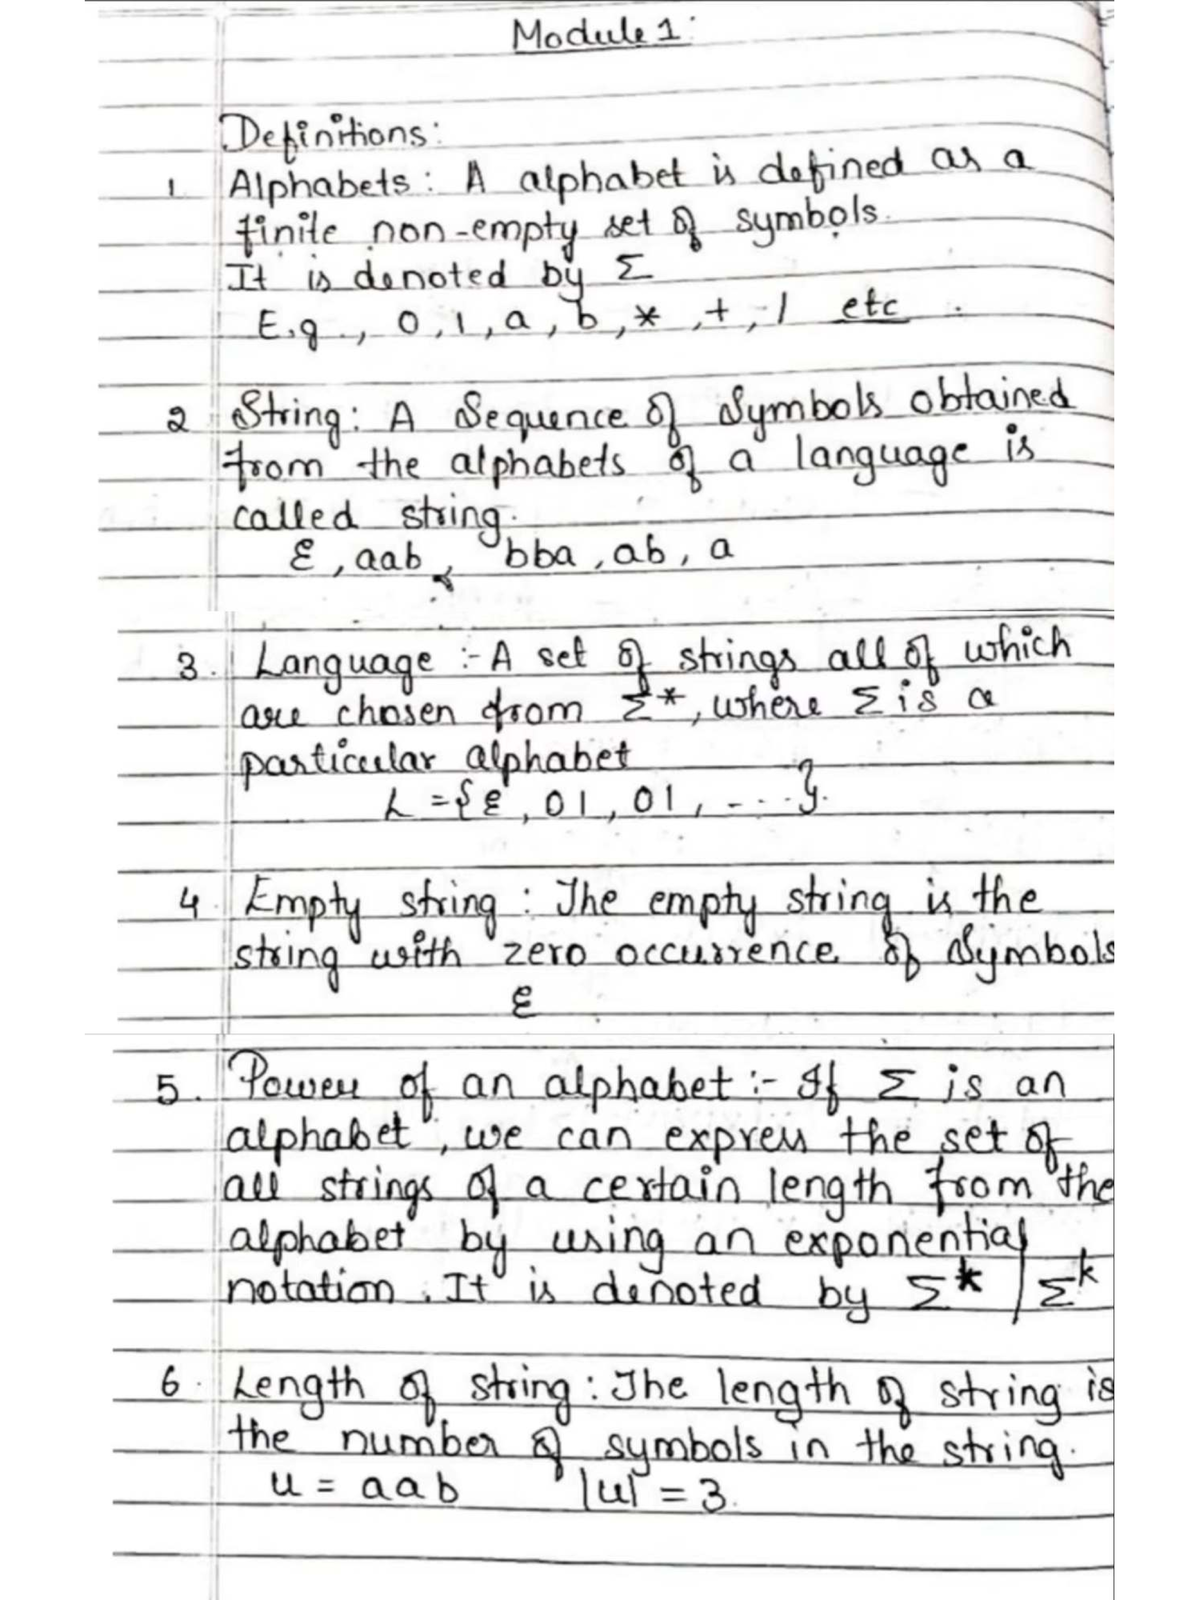 Module 1:
Definitions:
1. Alphabets: A alphabet is defined as a
finite non-empty set of symbols.
It is denoted by Σ
E.g., 0, 1, a, b, *, +, / etc.
2 String: A Sequence of Symbols obtained
from the alphabets of a language is
called string.
ε, aab, bba, ab, a
3. Language :- A set of strings all of which
are chosen from Σ*, where Σ is a
particular alphabet
L = {ε, 01, 01, ----}.
4. Empty string: The empty string is the
string with zero occurrence of Symbols
ε
5. Power of an alphabet :- If Σ is an
alphabet, we can express the set of
all strings of a certain length from the
alphabet by using an exponential
notation. It is denoted by Σ* / Σᵏ
6. Length of string: The length of string is
the number of symbols in the string.
u = aab |u| = 3.